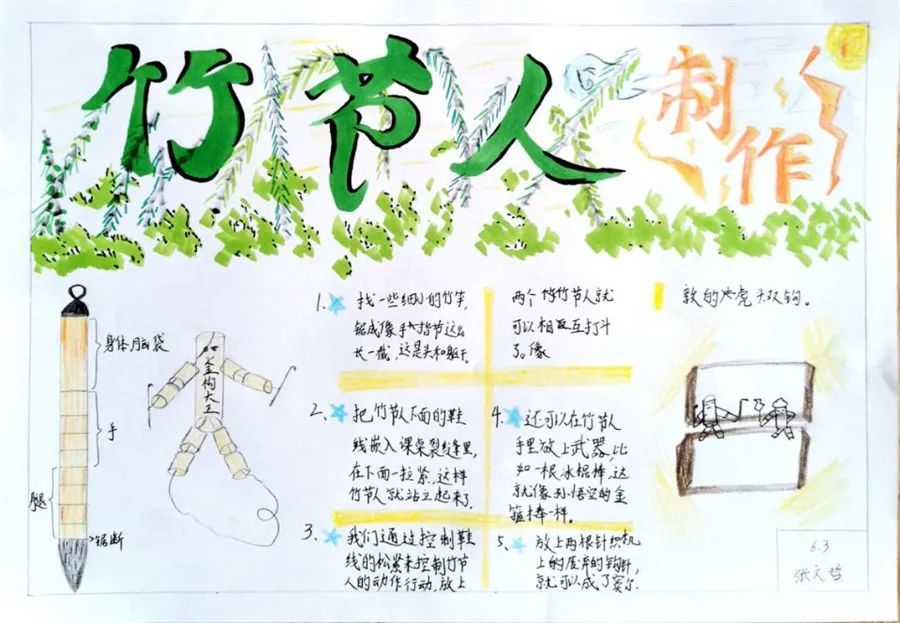 竹节人
制作
身体脑袋
手
腿
锯断
金构大王
1. 找一些细小的竹竿,
锯成像手指节这么
长一截,这是头和躯干。
2. 把竹节人下面的鞋
线嵌入课桌裂缝里,
在下面一拉紧,这样
竹节人就站立起来了.
3. 我们通过控制鞋
线的松紧来控制竹节
人的动作行动.放上
两个竹节人就
可以相互打斗
了。像
4. 还可以在竹节人
手里放上武器,比
如一根冰棍棒,这
就像孙悟空的金
箍棒一样。
5、放上两根针织机
上的废弃的钩针,
就可以成了窦尔
敦的虎头双钩。
6.3
张文哲